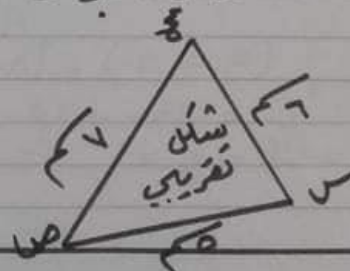 ع
٧ سم
٦ سم
شكل
تقريبي
س
ص
٥ سم